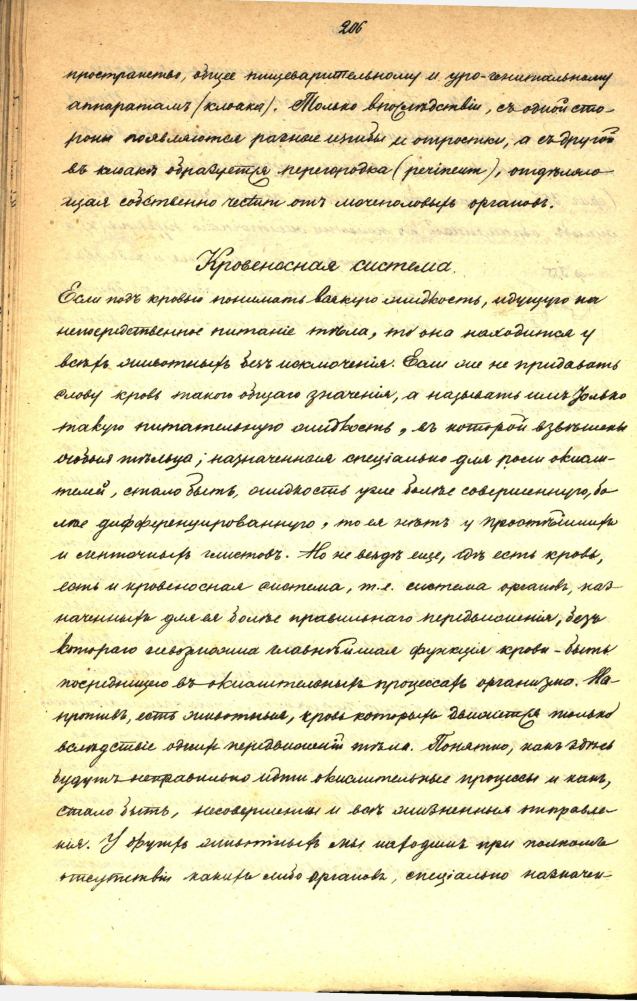 206
пространство, общее пищеварительному и уро-генитальному
аппаратамъ (клоака). Только впослѣдствіи, съ одной сто-
роны появляются разные изгибы и отростки, а съ другой
въ клоакѣ образуется перегородка (perineum), отдѣляю-
щая собственно части отъ мочеполовыхъ органовъ.
Кровеносная система.
Если подъ кровью понимать всякую жидкость, идущую на
непосредственное питаніе тѣла, то она находится у
всѣхъ животныхъ безъ исключенія. Если же не придавать
слову кровь такого общаго значенія, а называть имъ только
такую питательную жидкость, въ которой взвѣшены
особыя тѣльца, назначенныя спеціально для роли окисли-
телей, стало быть, жидкость уже болѣе совершенную, бо-
лѣе дифференцированную, то ея нѣтъ у простѣйшихъ
и ленточныхъ глистовъ. Но не вездѣ еще, гдѣ есть кровь,
есть и кровеносная система, т.е. система органовъ, наз-
наченныхъ для ея болѣе правильнаго передвиженія, безъ
котораго невозможна главнѣйшая функція крови - быть
посредницею въ окислительныхъ процессахъ организма. На-
противъ, есть животныя, кровь которыхъ движется только
вслѣдствіе однихъ передвиженій тѣла. Понятно, какъ здѣсь
будутъ неправильно идти окислительные процессы и какъ,
стало быть, несовершенны и всѣ жизненныя отправле-
нія. У другихъ животныхъ мы находимъ при полномъ
отсутствіи какихъ либо органовъ, спеціально назначен-